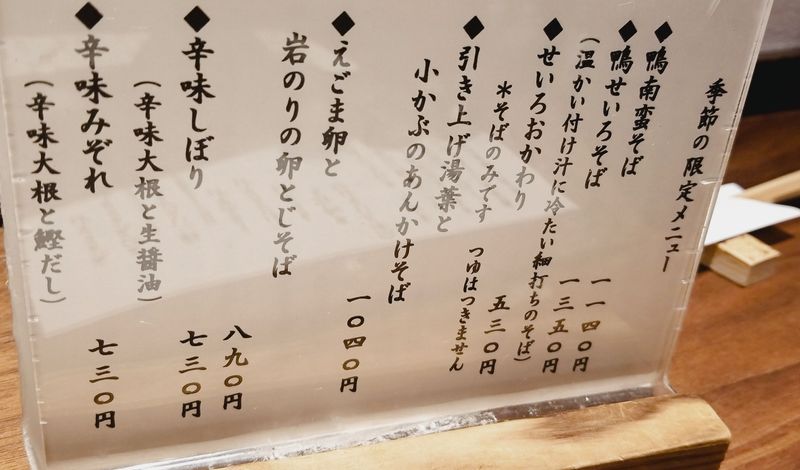 季節の限定メニュー
◆鴨南蛮そば 一一四〇円
◆鴨せいろそば 一三五〇円
（温かい付け汁に冷たい細打ちのそば）
◆せいろおかわり 五三〇円
＊そばのみです つゆはつきません
◆引き上げ湯葉と
小かぶのあんかけそば 一〇四〇円
◆えごま卵と
岩のりの卵とじそば 八九〇円
◆辛味しぼり 七三〇円
（辛味大根と生醤油）
◆辛味みぞれ 七三〇円
（辛味大根と鰹だし）